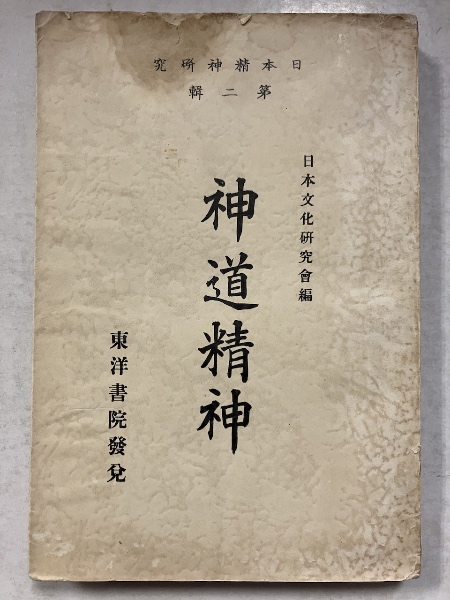 日本精神研究
第二輯
日本文化研究會編
神道精神
東洋書院發兌